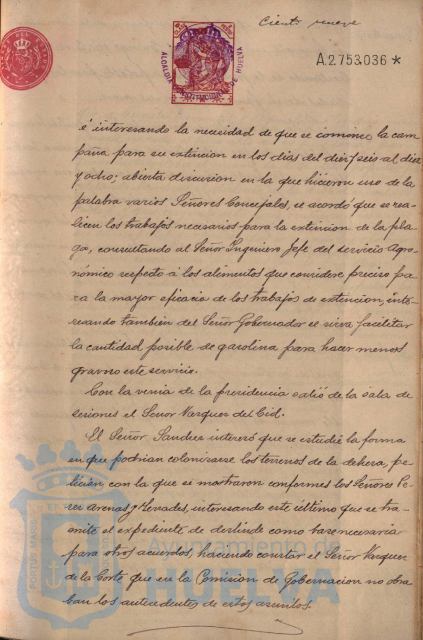 Ciento nueve
A.2753036 *
ALCALDIA CONSTITUCIONAL DE HUELVA
é interesando la necesidad de que se comience la cam
paña para su extincion en los dias del diez y seis al diez
y ocho; abierta discusion en la que hicieron uso de la
palabra varios Señores Concejales, se acordó que se rea-
licen los trabajos necesarios para la extincion de la pla-
ga, consultando al Señor Ingeniero Jefe del servicio Agro-
nómico respecto á los elementos que considere preciso pa
ra la mayor eficacia de los trabajos de extincion, inte-
resando tambien del Señor Gobernador se sirva facilitar
la cantidad posible de gasolina para hacer menos
gravoso este servicio.
Con la venia de la presidencia salió de la sala de
sesiones el Señor Vazquez del Cid.
El Señor Sanchez interesó que se estudie la forma
en que podrian colonizarse los terrenos de la dehesa, pe-
ticion con la que se mostraron conformes los Señores Pe
rez Arenas y Hevades, interesando este último que se tra-
mite el expediente de deslinde como base necesaria
para otros acuerdos, haciendo constar el Señor Vazquez
de la Corte que en la Comision de Gobernacion no obra
ban los antecedentes de estos asuntos.
PORTUS MARIS
Ayuntamiento
HUELVA